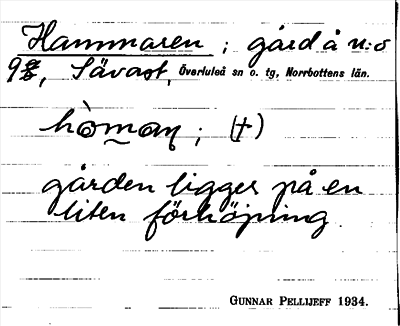 Hammaren ; gård å n:o
9 8/8, Sävast, Överluleå sn o. tg, Norrbottens län.
hò̀maṇ ; (†)
gården ligger på en
liten förhöjning.
GUNNAR PELLIJEFF 1934.